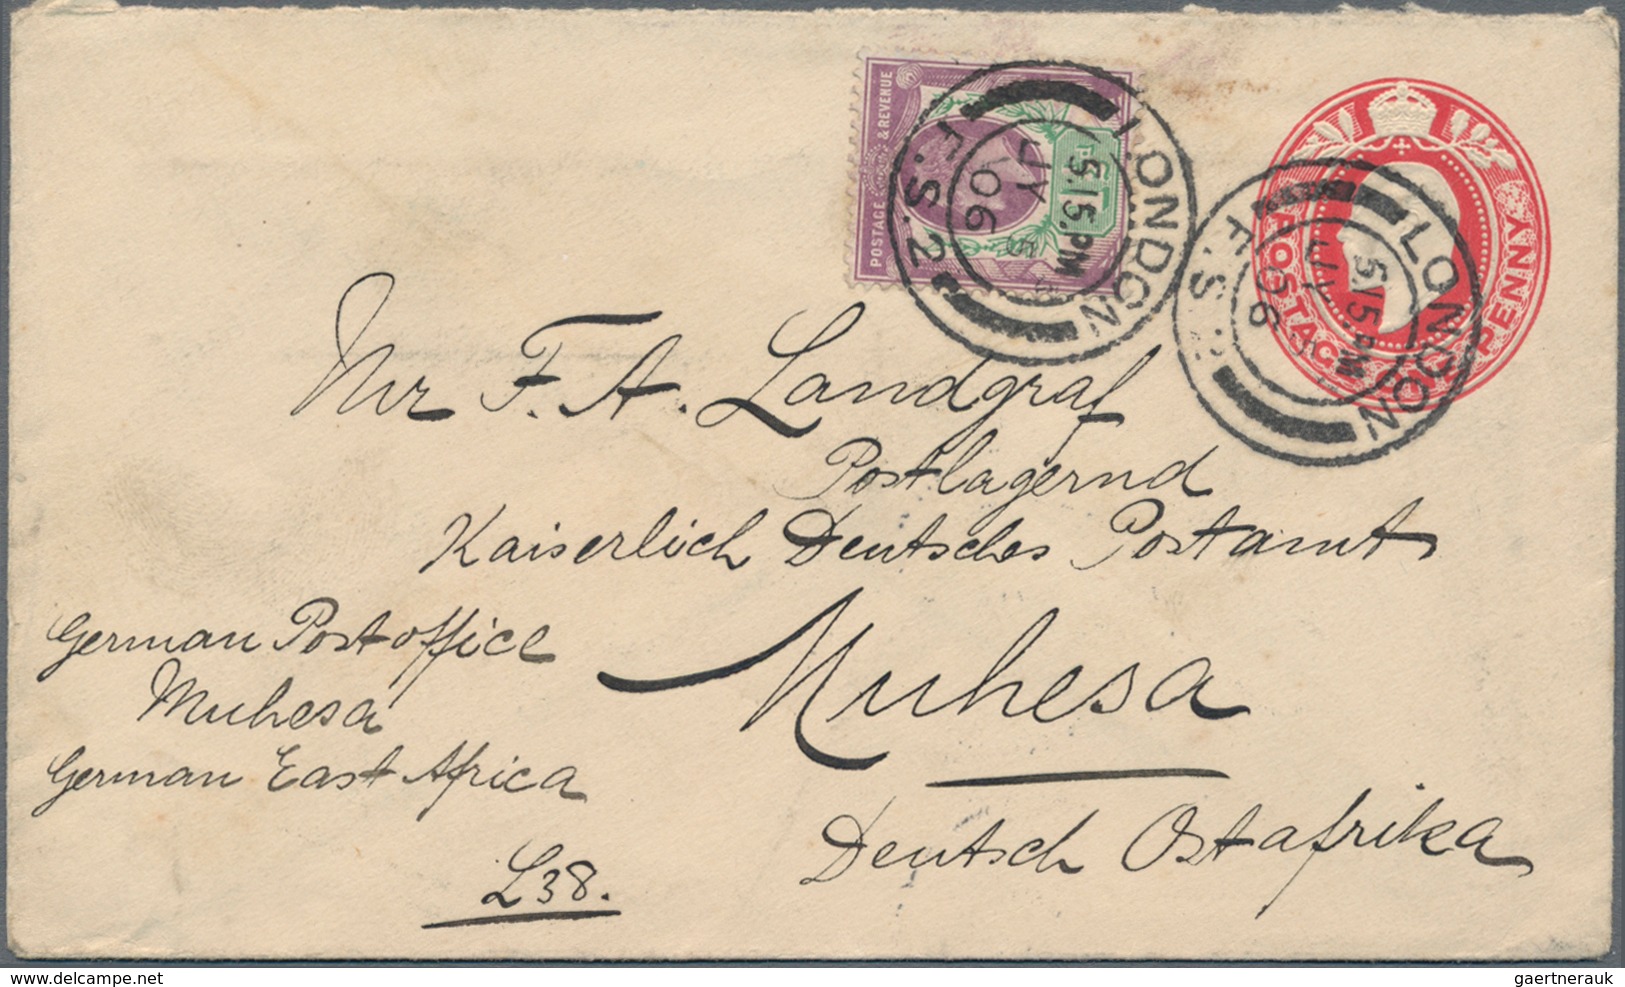 POSTAGE & REVENUE
LONDON
5.15.PM
JY 5
06
F.S. 2
POSTAGE ONE PENNY
LONDON
5.15.PM
JY
06
F.S.
Mr F. A. Landgraf
Postlagernd
Kaiserlich Deutsches Postamt
Muhesa
Deutsch Ostafrika
German Post office
Muhesa
German East Africa
L38.
www.delcampe.net
gaertnerauk